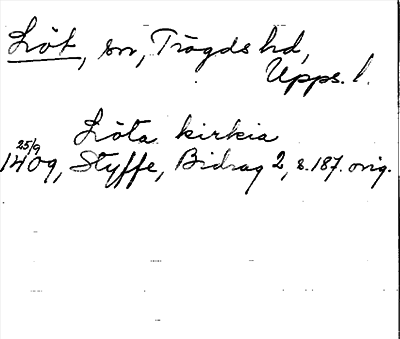 Löt, sn, Trögds hd,
Upps. l.
Löta kirkia
25/9
1409, Styffe, Bidrag 2, s. 187. orig.